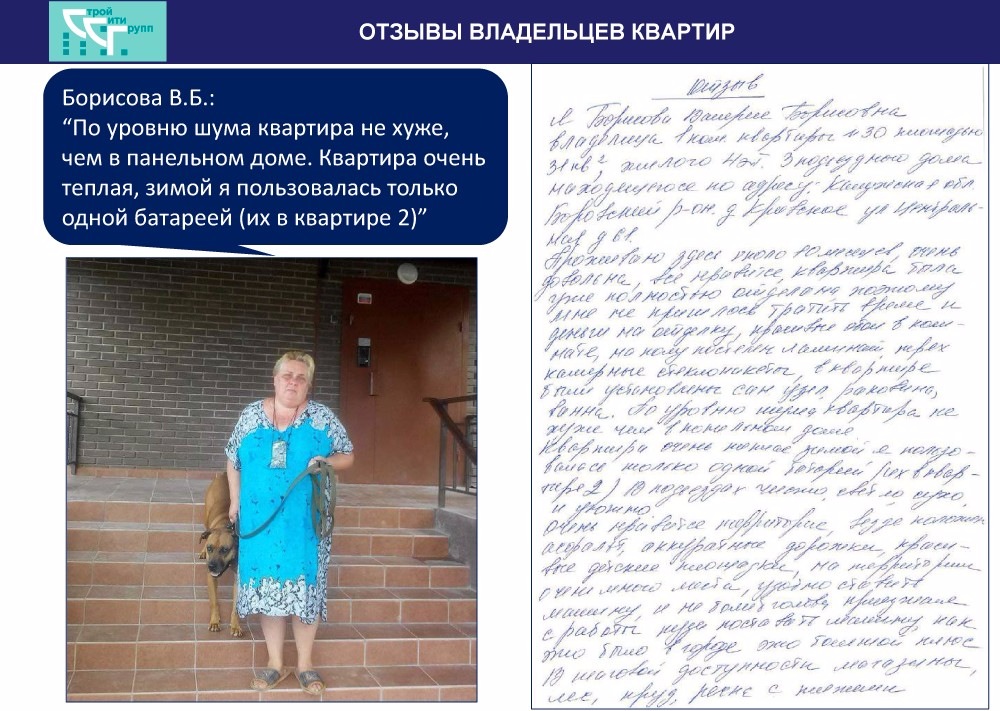 Строй
Сити
Групп
ОТЗЫВЫ ВЛАДЕЛЬЦЕВ КВАРТИР
Борисова В.Б.:
“По уровню шума квартира не хуже,
чем в панельном доме. Квартира очень
теплая, зимой я пользовалась только
одной батареей (их в квартире 2)”
Отзыв
Я Борисова Валерия Борисовна
владелица 1 ком. квартиры № 30 площадью
31 кв², жилого 4 эт. 3 подъездного дома
находящегося по адресу: Калужская обл.
Боровский р-он. д. Кривское ул Централь-
ная д 61.
Проживаю здесь около 10 месяцев, очень
довольна, все нравится, квартира была
уже полностью отделана поэтому
мне не пришлось тратить время и
деньги на отделку, красивые обои в ком-
нате, на полу постелен ламинат, трех
камерные стеклопакеты, в квартире
были установлены сан узел, раковина,
ванна. По уровню шума квартира не
хуже чем в панельном доме
Квартира очень теплая зимой я пользо-
валась только одной батареей (их в квар-
тире 2) В подъездах чисто, светло сухо
и уютно.
Очень нравится территория, везде положен
асфальт, аккуратные дорожки, краси-
вые детские площадки, на территории
очень много места, удобно ставить
машину, и не болит голова приезжая
с работы куда поставить машину, как
это было в городе это большой плюс
В шаговой доступности магазины,
лес, пруд, речка с пляжами